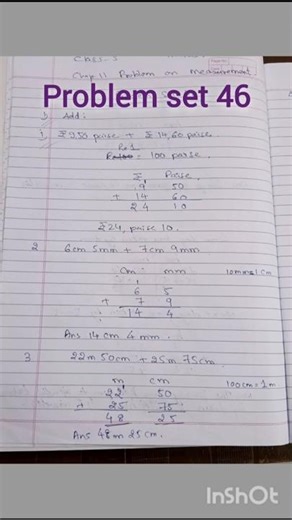 Class-5
Chap 11 Problem on measurement
Problem set 46
Add:
1 ₹ 9 50 paise + ₹ 14, 60 paise
₹ 1 = 100 paise.
₹ Paise
1
9 50
+ 14 60
24 10
₹24, paise 10.
2 6cm 5mm + 7cm 9mm
cm mm 10mm=1cm
1
6 5
+ 7 9
14 4
Ans 14 cm 4 mm.
3 22m 50cm + 25m 75cm
m cm 100cm = 1m
1
22 50
+ 25 75
48 25
Ans 48m 25cm.
InShOt